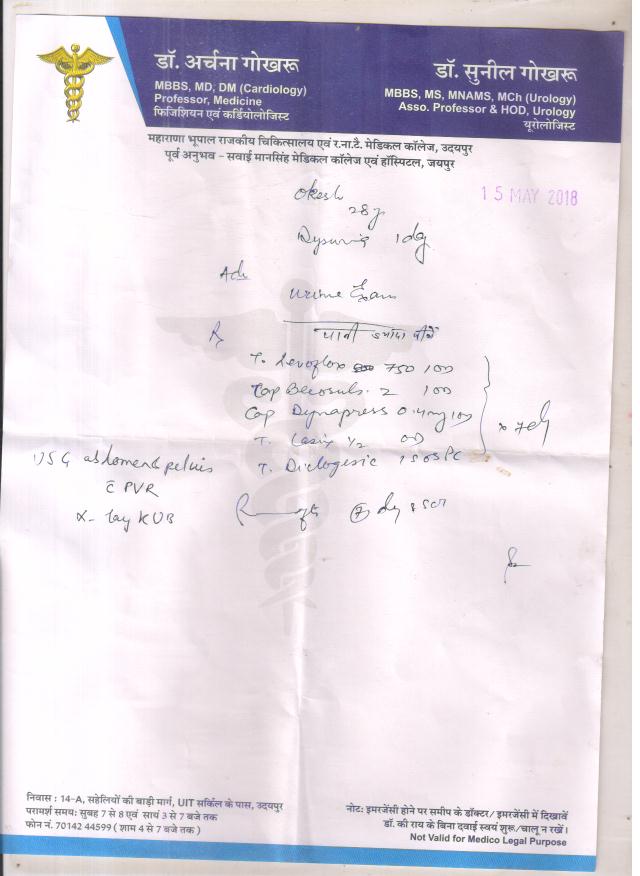 डॉ. अर्चना गोखरू
MBBS, MD, DM (Cardiology)
Professor, Medicine
फिजिशियन एवं कॉर्डियोलोजिस्ट
डॉ. सुनील गोखरू
MBBS, MS, MNAMS, MCh (Urology)
Asso. Professor & HOD, Urology
यूरोलोजिस्ट
महाराणा भूपाल राजकीय चिकित्सालय एवं र.ना.टै. मेडिकल कॉलेज, उदयपुर
पूर्व अनुभव – सवाई मानसिंह मेडिकल कॉलेज एवं हॉस्पिटल, जयपुर
15 MAY 2018
28y
Dysuria 1 day
Adv
Urine Exam
पानी ज्यादा पीयें
R
T. Levoflox 750 1 OD
Cap Becosules Z 1 OD
Cap Dynapress 0.4mg 1 OD
T. Lasix 1/2 OD
T. Diclogesic 1 SOS
USG abdomen & pelvis
c PVR
X-Ray KUB
निवास : 14-A, सहेलियों की बाड़ी मार्ग, UIT सर्किल के पास, उदयपुर
परामर्श समय: सुबह 7 से 8 एवं सायं 3 से 7 बजे तक
फोन नं. 70142 44599 ( शाम 4 से 7 बजे तक )
नोट: इमरजेंसी होने पर समीप के डॉक्टर/ इमरजेंसी में दिखावें
डॉ. की राय के बिना दवाई स्वयं शुरू/चालू न रखें।
Not Valid for Medico Legal Purpose